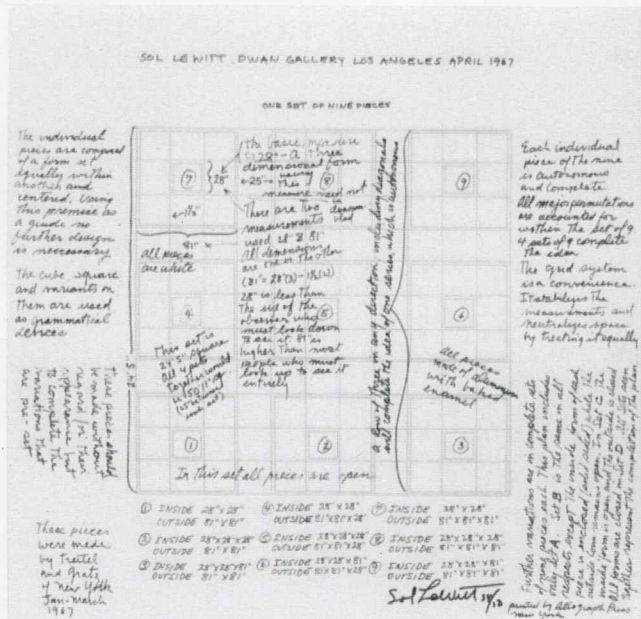 SOL LEWITT. DWAN GALLERY LOS ANGELES APRIL 1967
ONE SET OF NINE PIECES
The individual
pieces are composed
of a form set
equally within
another and
centered. Using
this premise as
a guide no
further design
is necessary
The cube, square
and variants on
them are used
as grammatical
devices
these pieces should
be made without
regard for their
appearance but
to complete the
variations that
are pre-set
These pieces
were made
by Treitel
and Gratz
of New York
Jan-March
1967
7
28"
The basic measure
is 28" - A three
dimensional form
← 25 →
8
measure used not
There are two
measurements
used 28" & 81"
All dimensions
are one or the other
28" is less than
the size of the
observer who
must look down
to see it 81" is
higher than most
people who must
look up to see it
entirely
81"
all pieces
are white
4
5
6
This set is
1
2
3
In this set all pieces are open
a row of three in any direction, including diagonals
will complete the idea of one series, which is autonomous
9
all pieces
made of
with baked
enamel
Each individual
piece of the nine
is autonomous
and complete
All major permutations
are accounted for
within the set of 9
4 sets of 9 complete
the idea
The grid system
is a convenience.
It stabilizes the
measurements and
neutralizes space
by treating it equally
Further variations are in complete sets
of nine pieces each. This plan includes
only Set A. Set B is the same in all
respects except the inside form of each
piece is enclosed (solid sided) while the
outside form remains open. In Set C the
inside form is open and the outside is closed
All forms are closed in Set D.
1 INSIDE 28"x28"
OUTSIDE 81"x81"
2 INSIDE 28"x28"x28"
OUTSIDE 81"x81"
3 INSIDE 28"x28"x81"
OUTSIDE 81"x81"
4 INSIDE 28"x28"
OUTSIDE 81"x81"x28"
5 INSIDE 28"x28"x28"
OUTSIDE 81"x81"x28"
6 INSIDE 28"x28"x81"
OUTSIDE 81"x81"x28"
7 INSIDE 28"x28"
OUTSIDE 81"x81"x81"
8 INSIDE 28"x28"x28"
OUTSIDE 81"x81"x81"
9 INSIDE 28"x28"x81"
OUTSIDE 81"x81"x81"
Sol LeWitt
printed by Allograph Press
New York